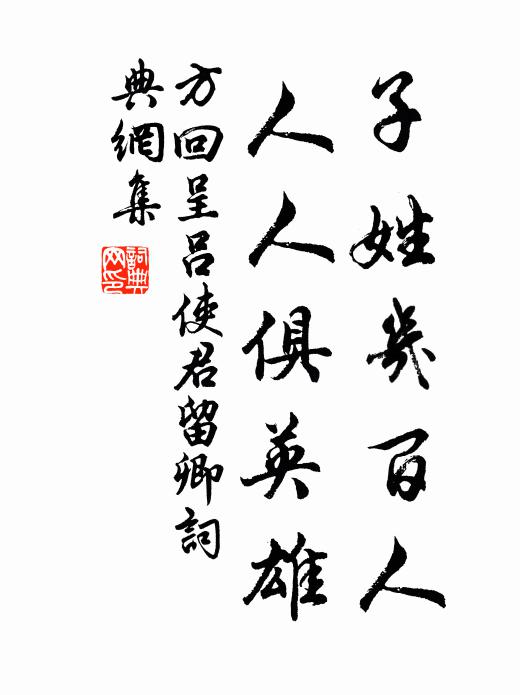 子姓幾百人
人人俱英雄
方回呈呂使君留卿詞
典網集
詞典網印